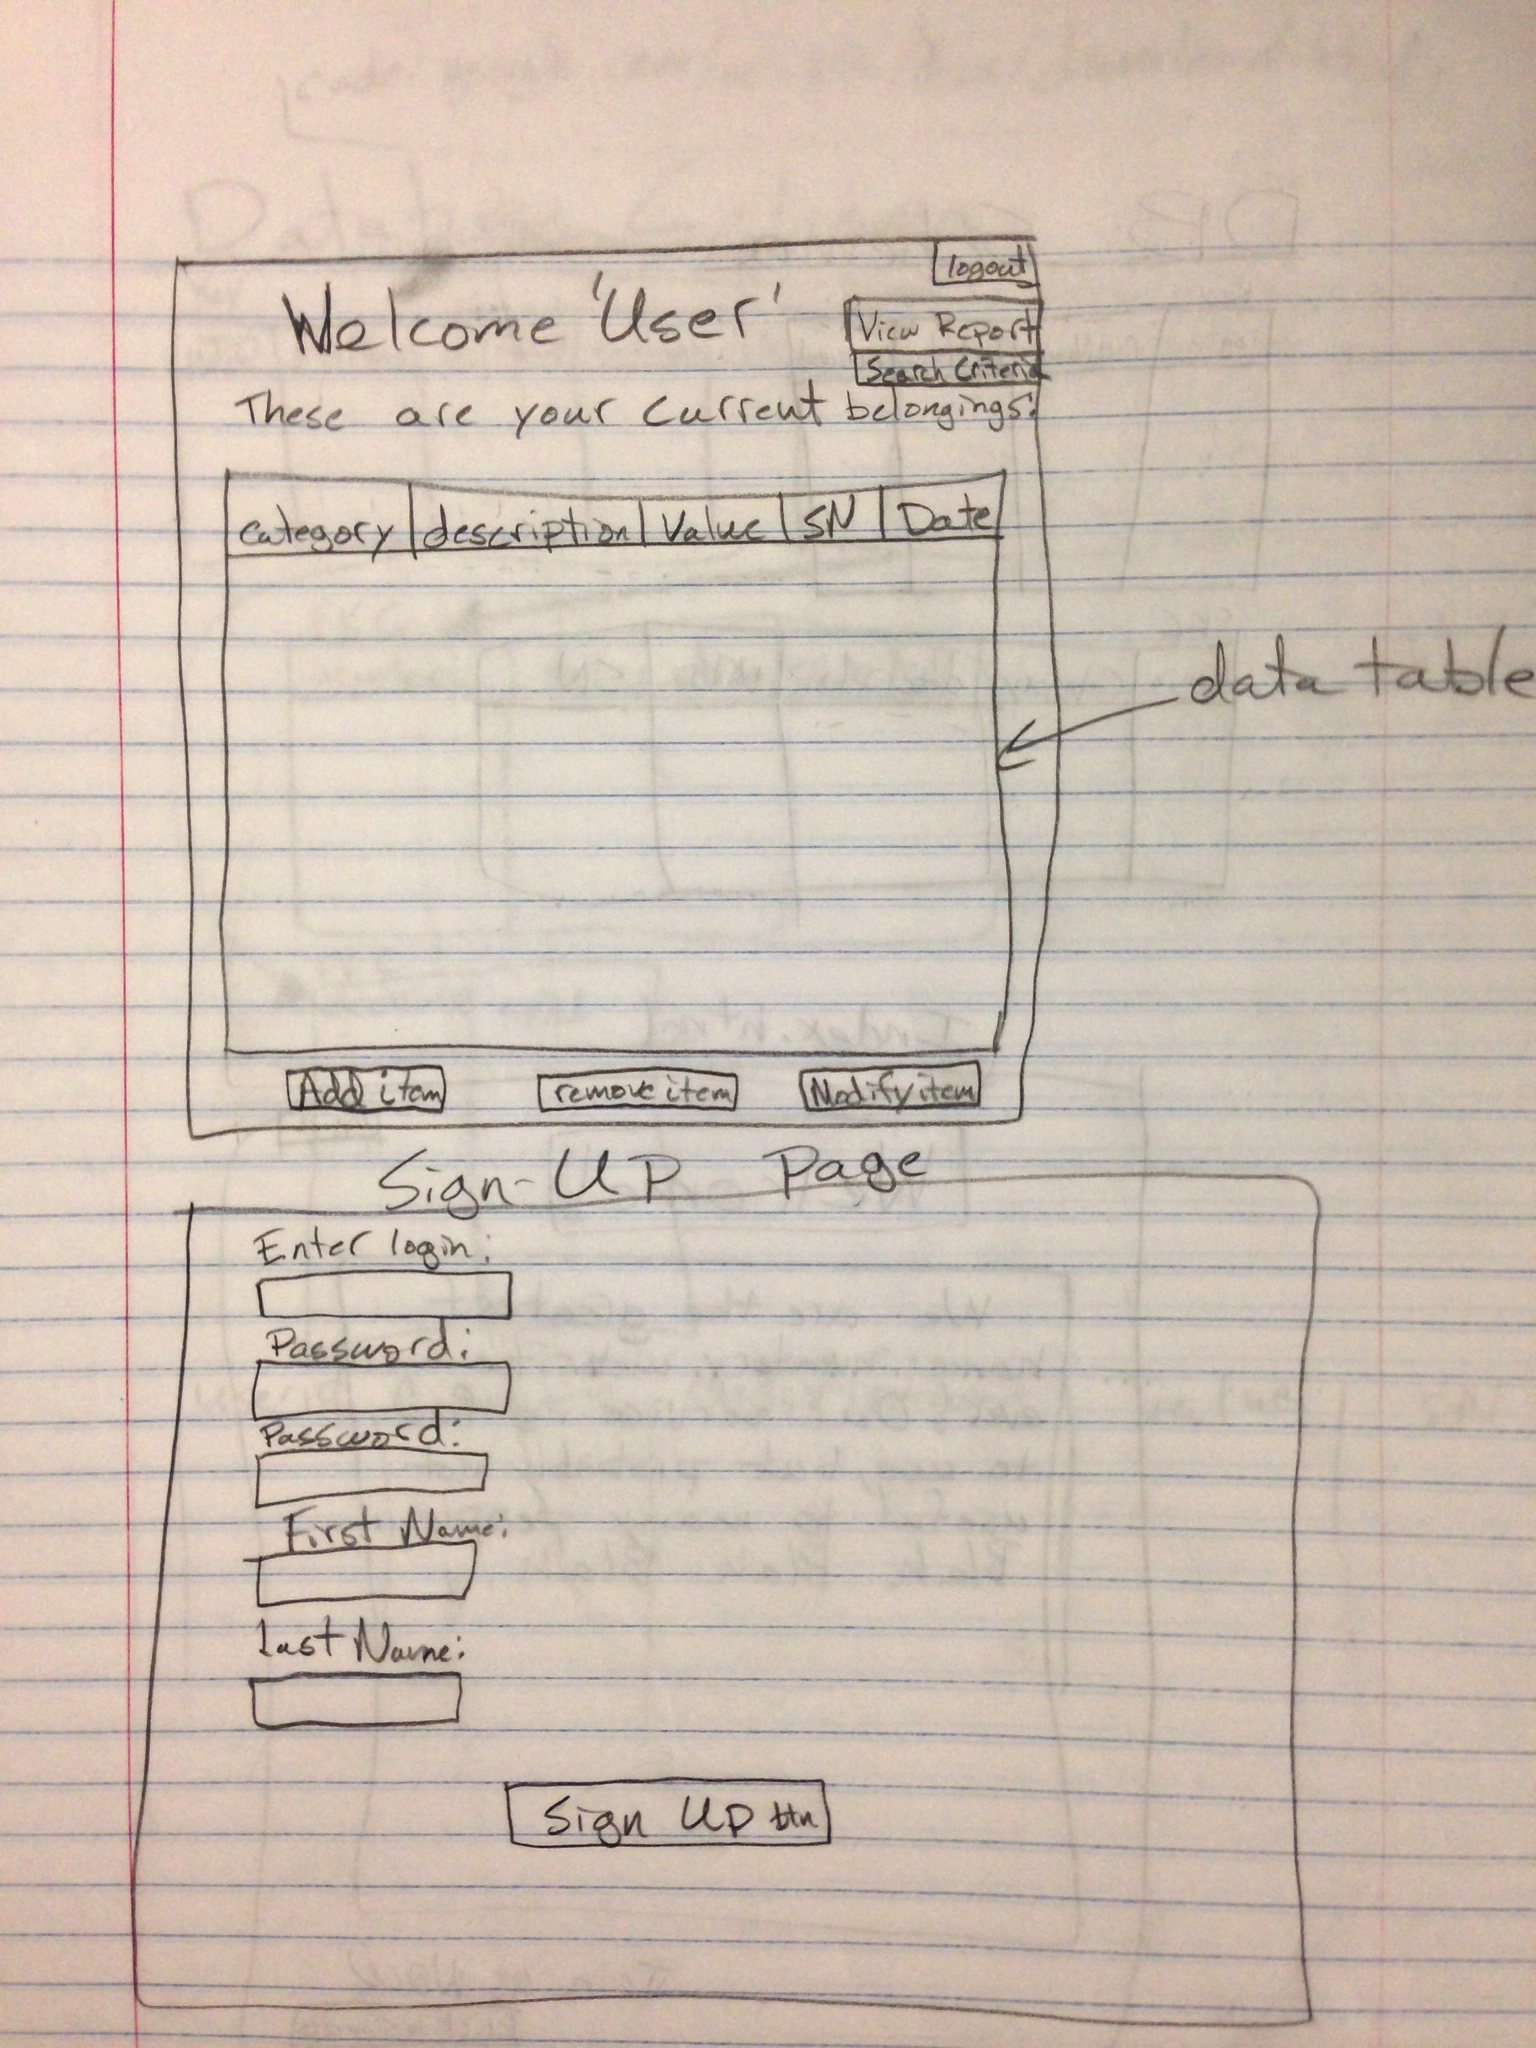 logout
Welcome 'User'
View Report
Search Criteria
These are your current belongings:
category description Value SN Date
data table
Add item remove item Modify item
Sign-Up Page
Enter login:
Password:
Password:
First Name:
Last Name:
Sign Up btn